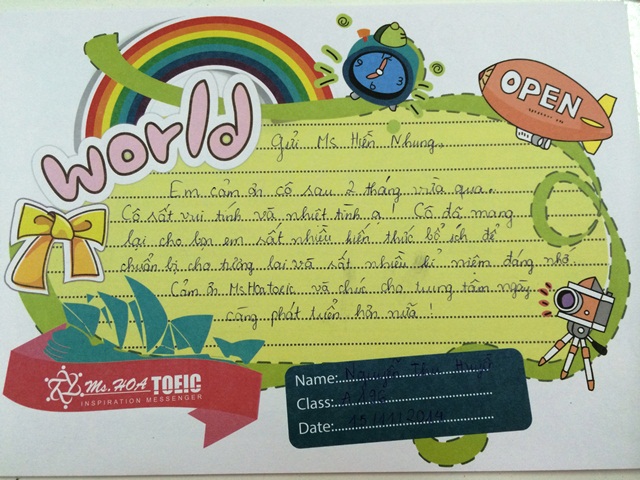 world
OPEN
Gửi Ms Hiền Nhung.
Em cảm ơn cô sau 2 tháng vừa qua..
Cô rất vui tính và nhiệt tình ạ! Cô đã mang
lại cho bọn em rất nhiều kiến thức bổ ích để
chuẩn bị cho tương lai và rất nhiều kỉ niệm đáng nhớ..
Cảm ơn Ms.Hoa toeic và chúc cho trung tâm ngày
càng phát triển hơn nữa!
Ms.HOA TOEIC
INSPIRATION MESSENGER
Name: Nguyễn Thu
Class:
Date: